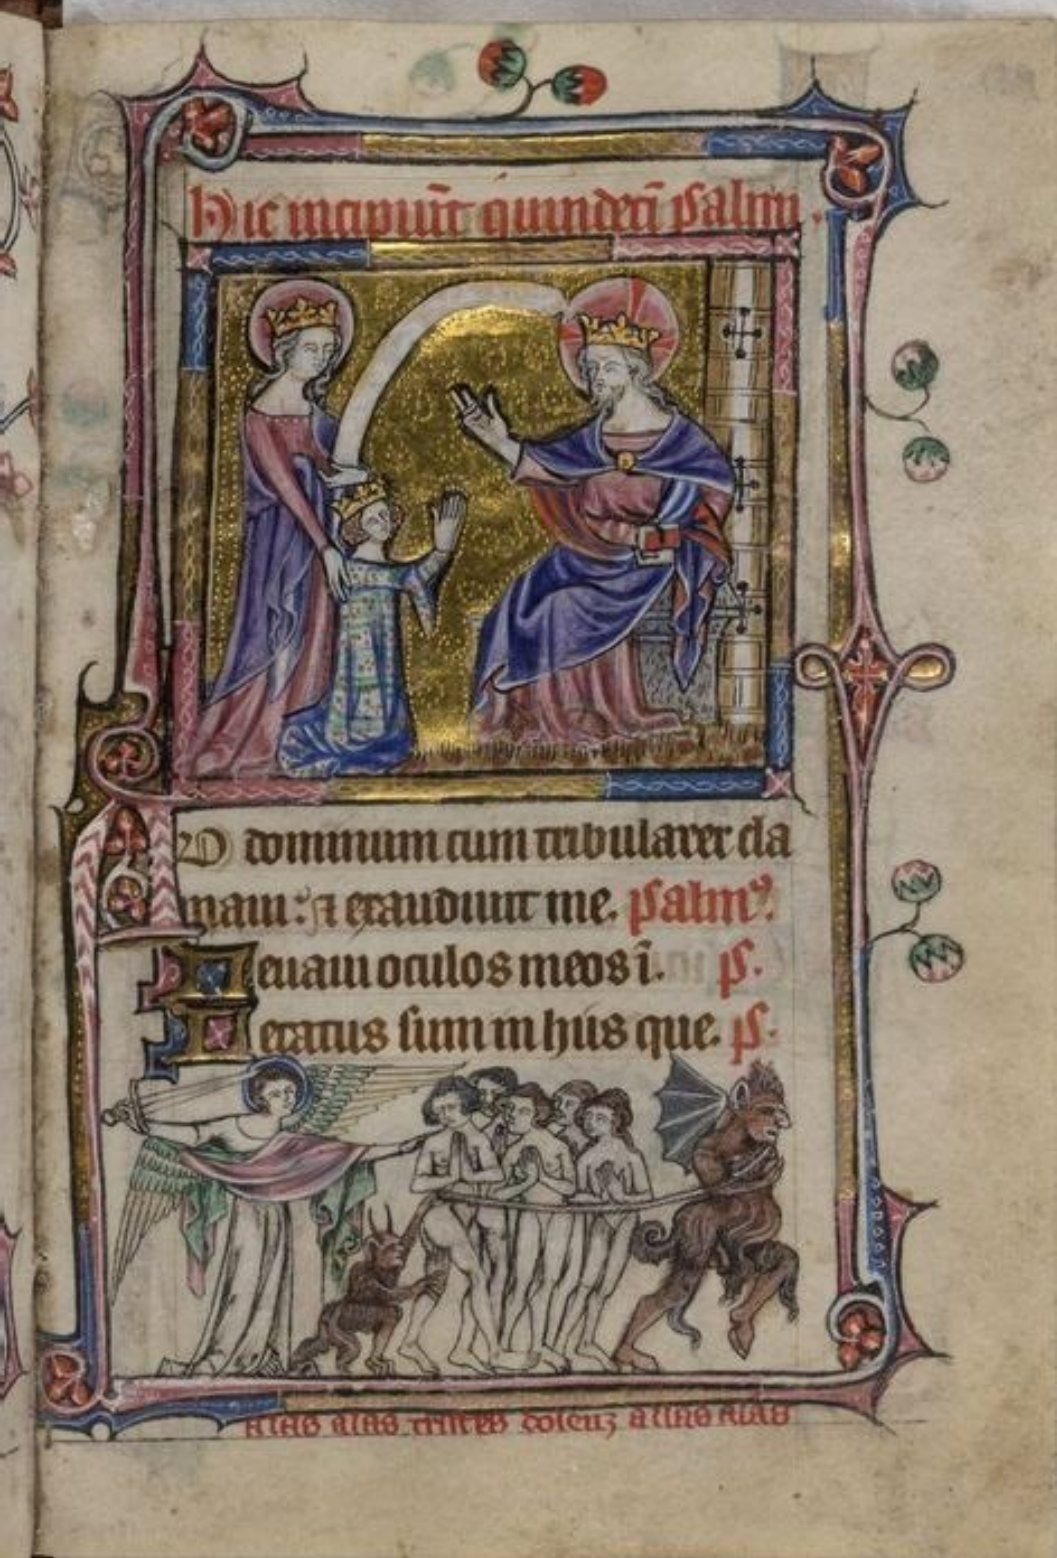 Hic incipiūt quindeci̅ psalmi.
AD dominum cum tribularer cla
maui : et exaudiuit me. psalmꝰ.
Leuaui oculos meos ī. p̄.
Letatus sum in hiis que. p̄.
alas alas tristes dolenz allas alas